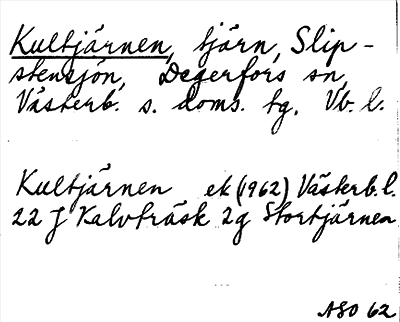 Kultjärnen, tjärn, Slip-
stensjön, Degerfors sn,
Västerb. s. doms. tg. Vb. l.
Kultjärnen ek (1962) Västerb. l.
22 J Kalvträsk 2g Stortjärnen
ASO 62